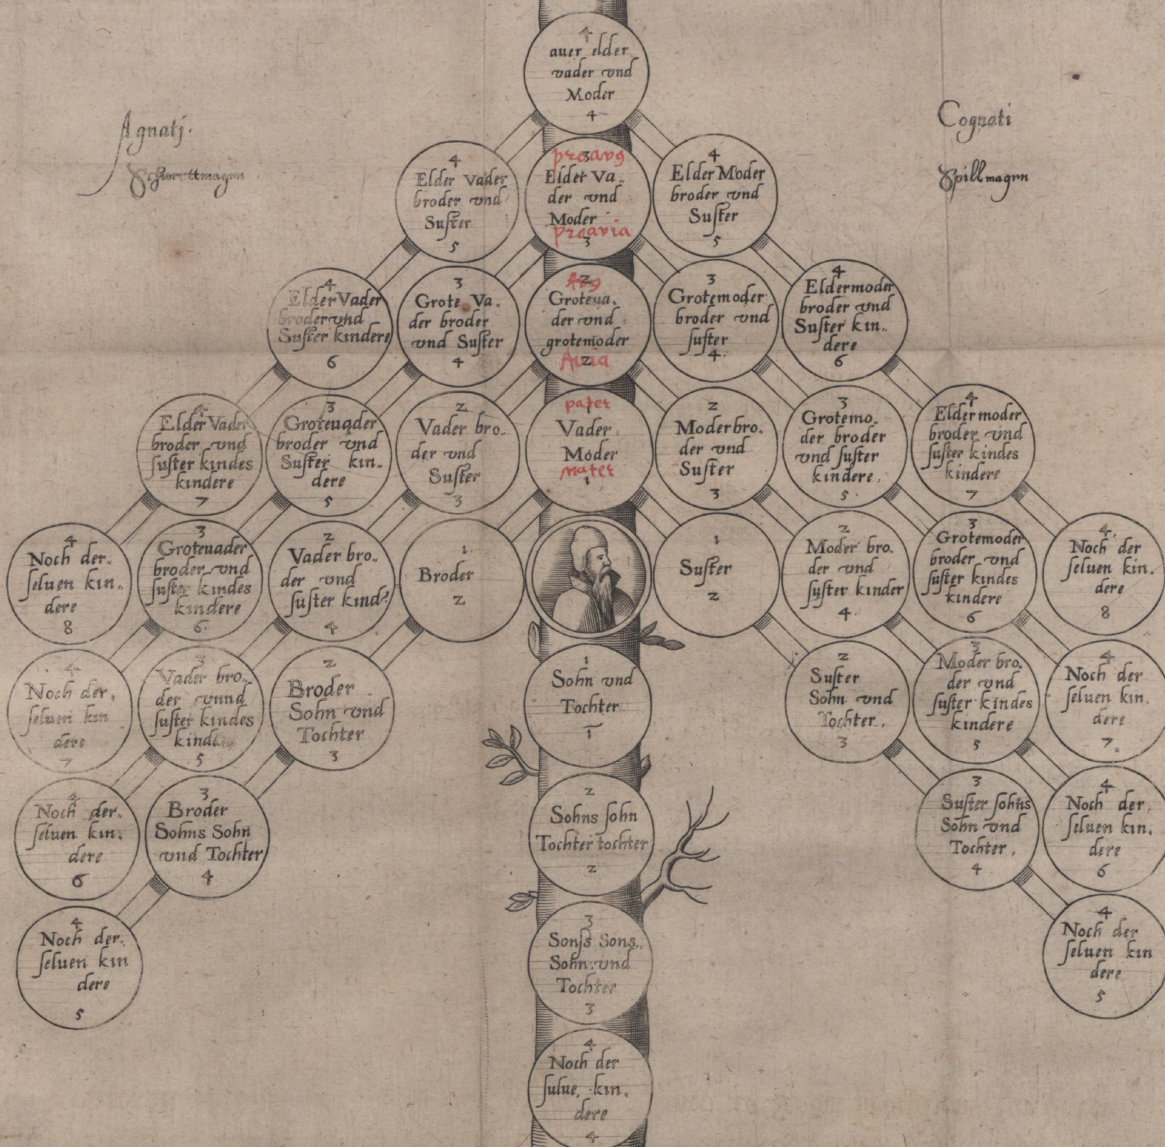 4
auer elder
vader vnd
Moder
4
Agnatj.
Cognati
Spillmagen
4
Elder Vader
broder vnd
Suster
5
proavg
3
Elder Va..
der vnd
Moder
proavia
3
4
Elder Moder
broder vnd
Suster
5
4
Elder Vader
broder vnd
Suster kindere
6
3
Grote Va..
der broder
vnd Suster
4
Avg
2
Groteua.
der vnd
grotemoder
Avia
2
3
Grotemoder
broder vnd
suster
4.
4
Eldermoder
broder vnd
Suster kin..
dere
6
4
Elder Vader
broder vnd
suster kindes
kindere
7
3
Groteuader
broder vnd
Suster kin..
dere
5
2
Vader bro..
der vnd
Suster
3
pater
1
Vader
Moder
mater
1
2
Moder bro.
der vnd
Suster
3
3
Grotemo.
der broder
vnd suster
kindere.
5
4
Elder moder
broder vnd
suster kindes
kindere
7
4
Noch der..
seluen kin..
dere
8
3
Groteuader
broder vnd
suster kindes
kindere
6
2
Vader bro..
der vnd
suster kind?
4
1
Broder
2
1
Suster
2
2
Moder bro.
der vnd
suster kinder
4
3
Grotemoder
broder vnd
suster kindes
kindere
6
4
Noch der
seluen kin.
dere
8
4
Noch der.
seluen kin
dere
7
3
Vader bro.
der vnnd
suster kindes
5
2
Broder
Sohn vnd
Tochter
3
1
Sohn vnd
Tochter
1
2
Suster
Sohn vnd
Tochter.
3
3
Moder bro.
der vnd
suster kindes
kindere
5
4
Noch der
seluen kin.
dere
7.
4
Noch der.
seluen kin.
dere
6
3
Broder
Sohns Sohn
vnd Tochter
4
2
Sohns sohn
Tochter tochter
2
3
Suster sohns
Sohn vnd
Tochter.
4
4
Noch der
seluen kin.
dere
6
4
Noch der.
seluen kin
dere
5
3
Sonss Sons.
Sohn vnd
Tochter
3
4
Noch der
seluen kin
dere
5
4
Noch der
sulue, kin.
dere
4